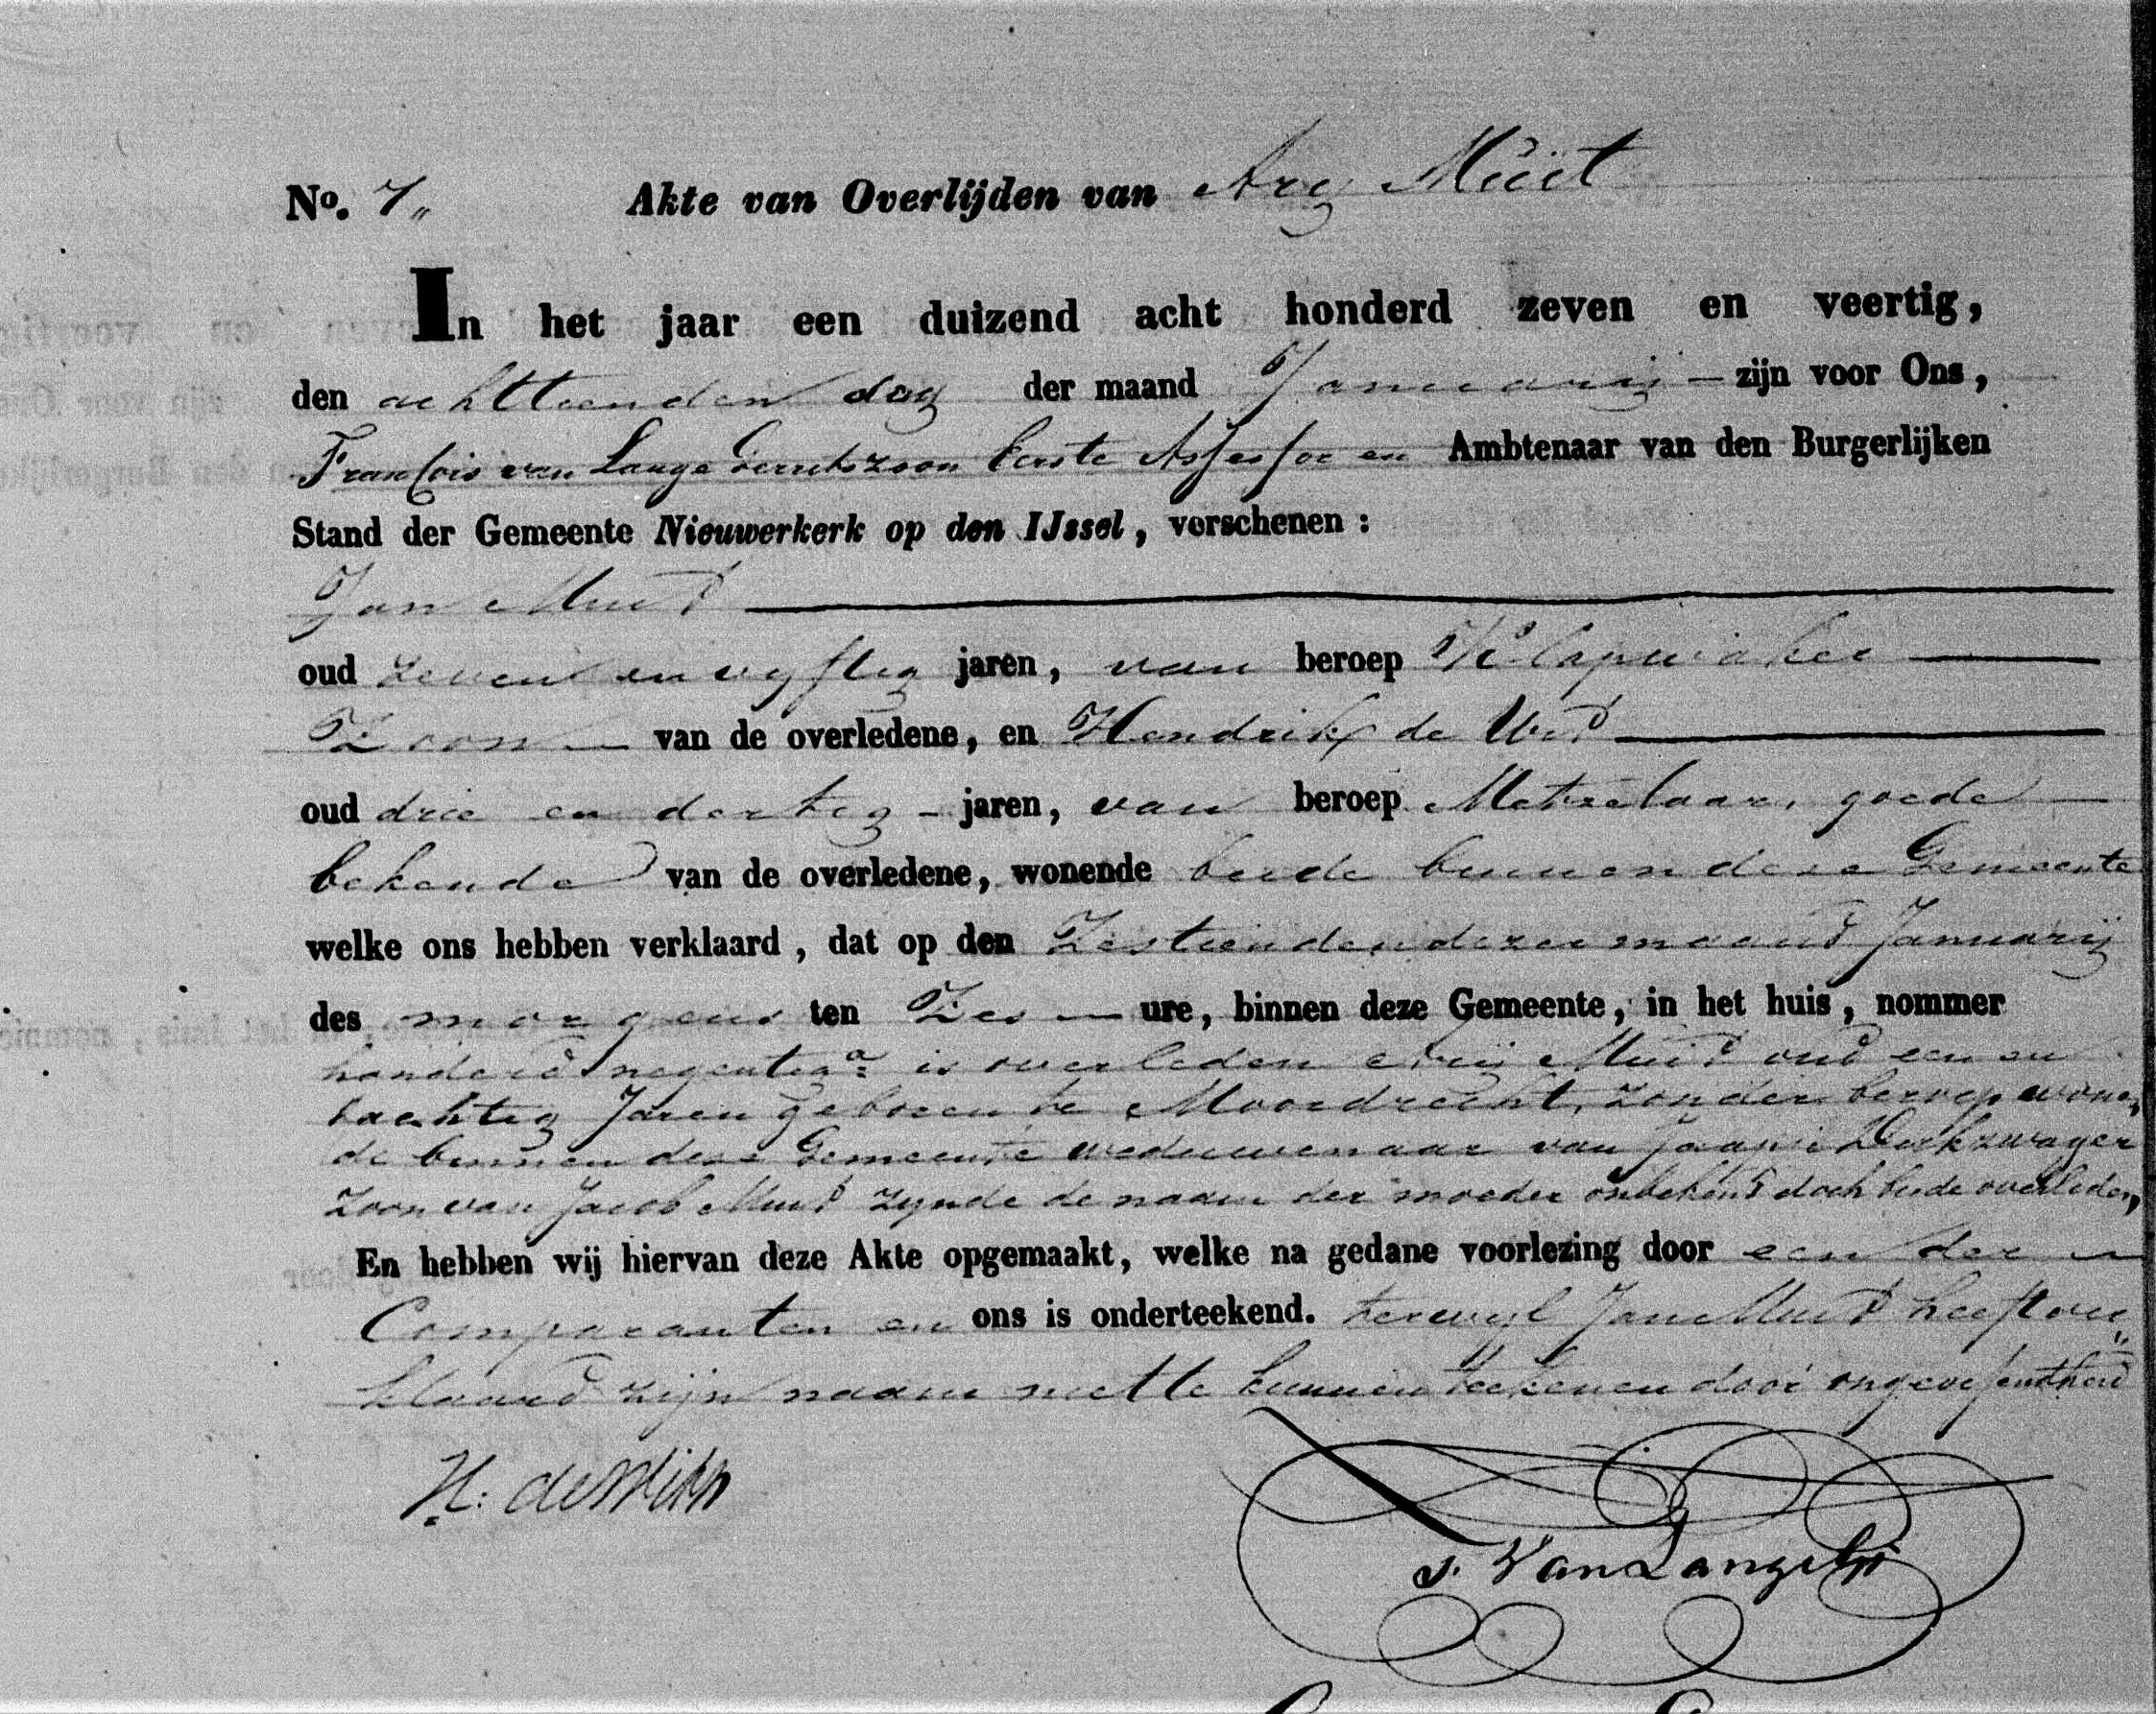 No. 7„ Akte van Overlijden van Arij Muit
In het jaar een duizend acht honderd zeven en veertig,
den achttienden dag der maand Januarij – zijn voor Ons,
Francois van Lange Gerritszoon Eerste Assessor en Ambtenaar van den Burgerlijken
Stand der Gemeente Nieuwerkerk op den IJssel, verschenen:
Jan Muit
oud zeven en vyftig jaren, van beroep Klapwaker
Zoon – van de overledene, en Hendrik de
oud drie en dertig – jaren, van beroep Metzelaar, goede
bekende van de overledene, wonende beide binnen deze Gemeente
welke ons hebben verklaard, dat op den Zestienden dezer maand Januarij
des morgens ten Zes – ure, binnen deze Gemeente, in het huis, nommer
honderd negentig a is overleden Arij Muit oud een en
tachtig Jaren geboren te Moordrecht, zonder beroep wonen
de binnen deze Gemeente weduwenaar van Jaapie Dorkzwager
zoon van Jacob Muit zynde de naam der moeder onbekend doch beide overleden,
En hebben wij hiervan deze Akte opgemaakt, welke na gedane voorlezing door een der
Comparanten en ons is onderteekend. terwyl Jan Muit heeft ver„
klaard zijn naam niet te kunnen teekenen door ongeoefendheid
H: de With
F. Van Lange Gz